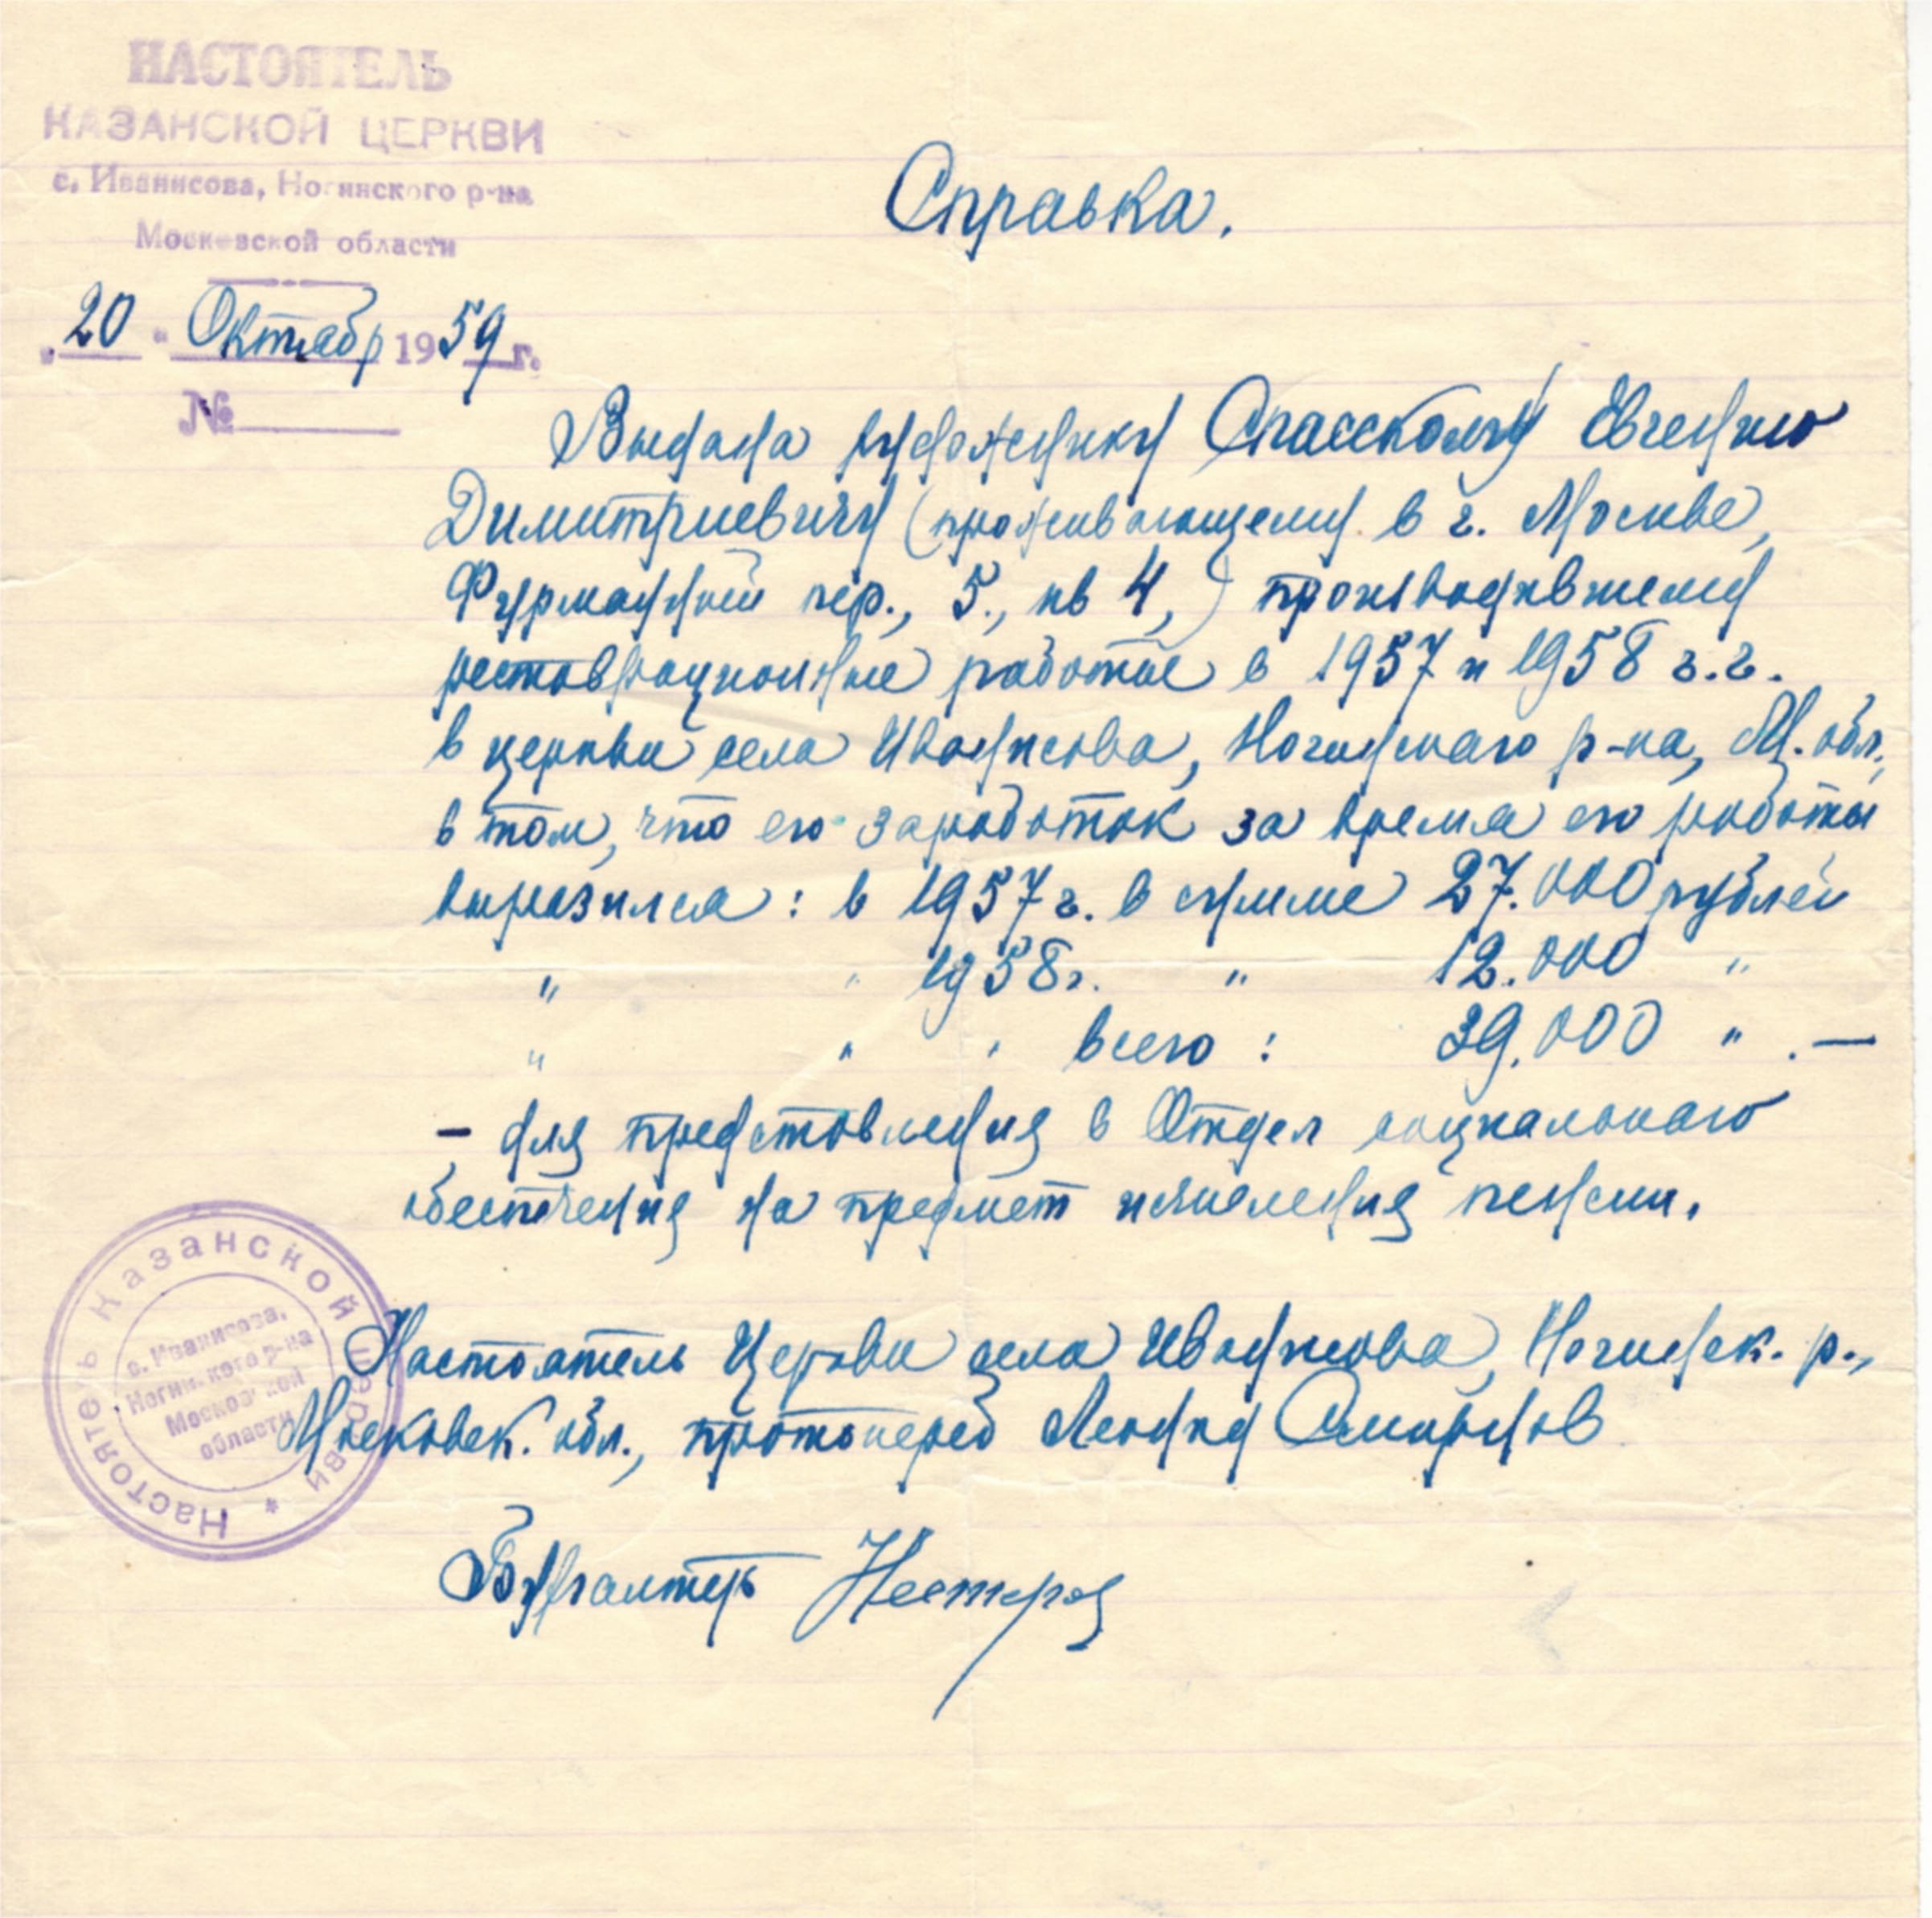 НАСТОЯТЕЛЬ
КАЗАНСКОЙ ЦЕРКВИ
с. Иванисова, Ногинского р-на
Московской области
"20" Октябр 1959 г.
№
Справка.
Выдана художнику Спасскому Евгению
Димитриевичу (проживающему в г. Москве,
Фурманный пер., 5., кв 4,) производившему
реставрационные работы в 1957 и 1958 г.г.
в церкви села Иванисова, Ногинскаго р-на, М. обл.,
в том, что его заработок за время его работы
выразился: в 1957 г. в сумме 27.000 рублей
" " 1958 г. " 12.000 "
" " " всего: 39.000 " . —
- для представления в Отдел социальнаго
обеспечения на предмет исчисления пенсии.
Настоятель Церкви села Иванисова, Ногинск. р.,
Московск. обл., протоиерей Леонид Смирнов
Бухгалтер
Настоятель Казанской церкви *
с. Иванисова,
Ногинского р-на
Московской
области